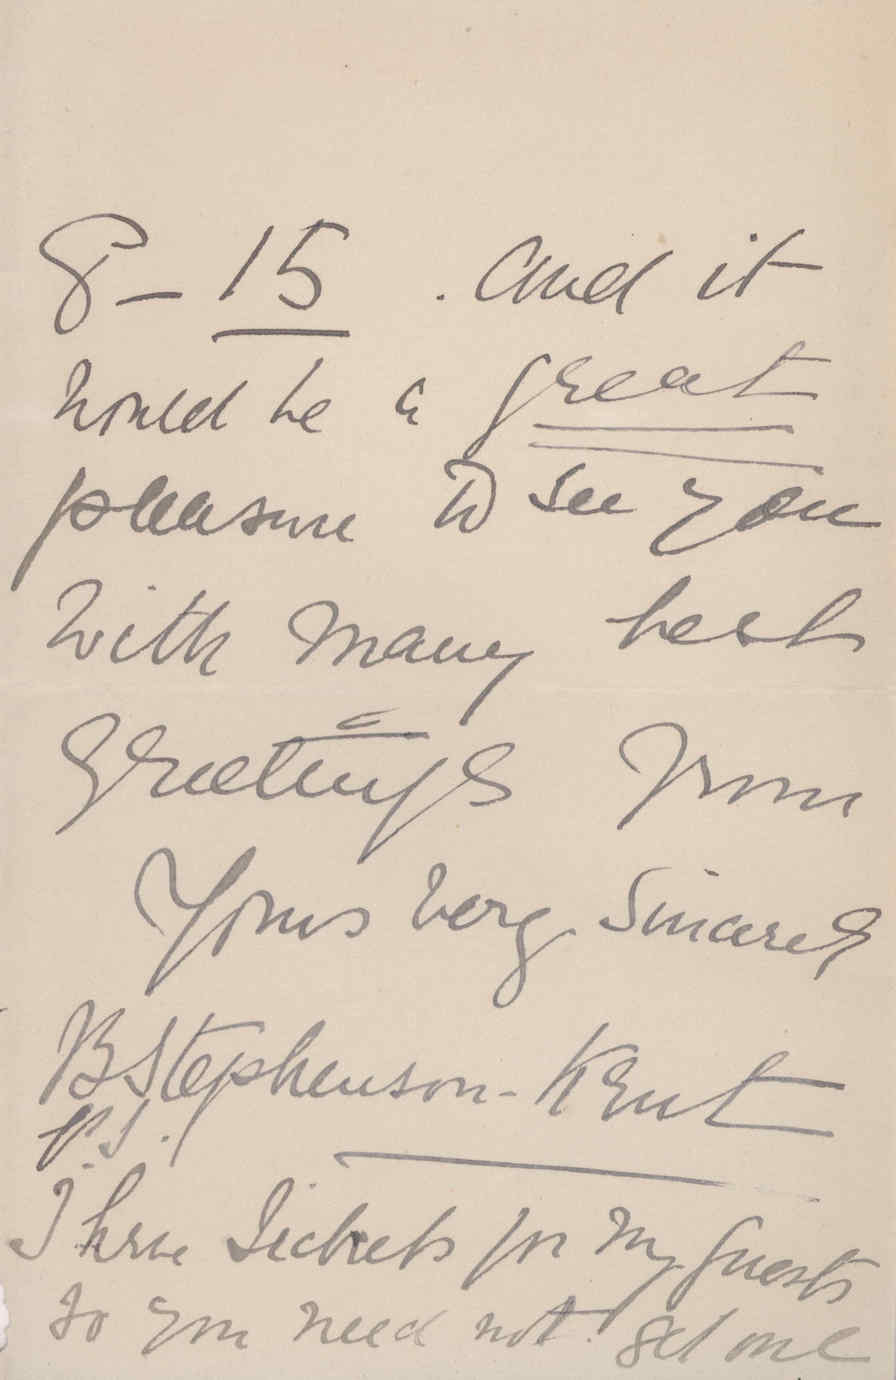 8-15. and it
would be a great
pleasure to see you
With many best
Greetings from
Yours very Sincerely
B Stephenson-Kent
P.S.
I have Tickets for my guests
so you need not get one